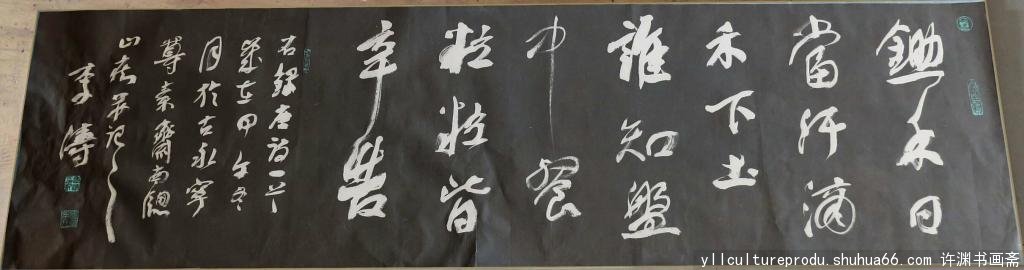 鋤禾日
當汗滴
禾下土
誰知盤
中餐
粒粒皆
辛苦
右錄唐詩一首
歲在甲午冬
月於古永寧
尊素齋南窗
山泉並記之
李濤
yllcultureprodu.shuhua66.com 许渊书画斋